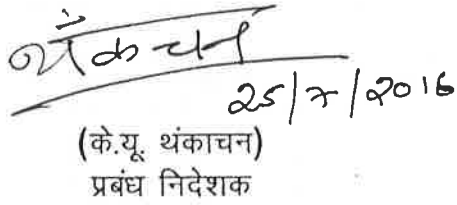 थंकाचन
25/7/2016
(के.यू. थंकाचन)
प्रबंध निदेशक